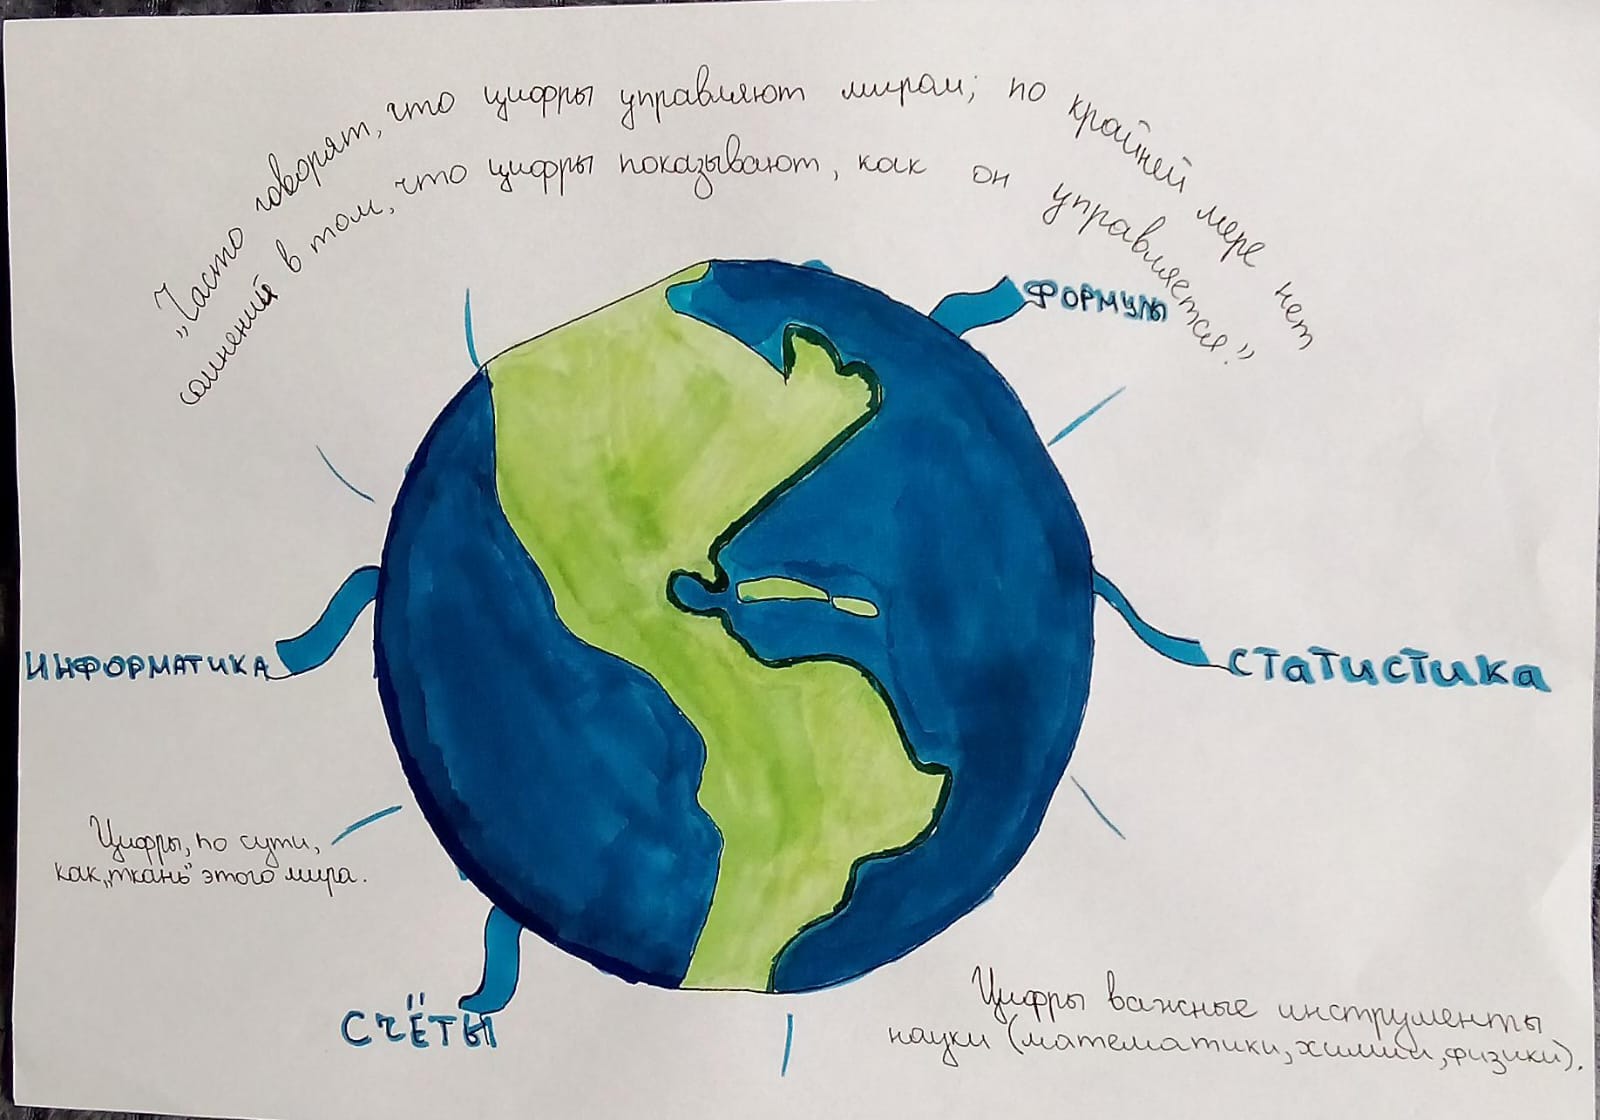 „Часто говорят, что цифры управляют миром; по крайней мере нет
сомнений в том, что цифры показывают, как он управляется.”
ФОРМУЛЫ
ИНФОРМАТИКА
СТАТИСТИКА
Цифры, по сути,
как „ткань" этого мира.
СЧЁТЫ
Цифры важные инструменты
науки (математики, химии, физики).